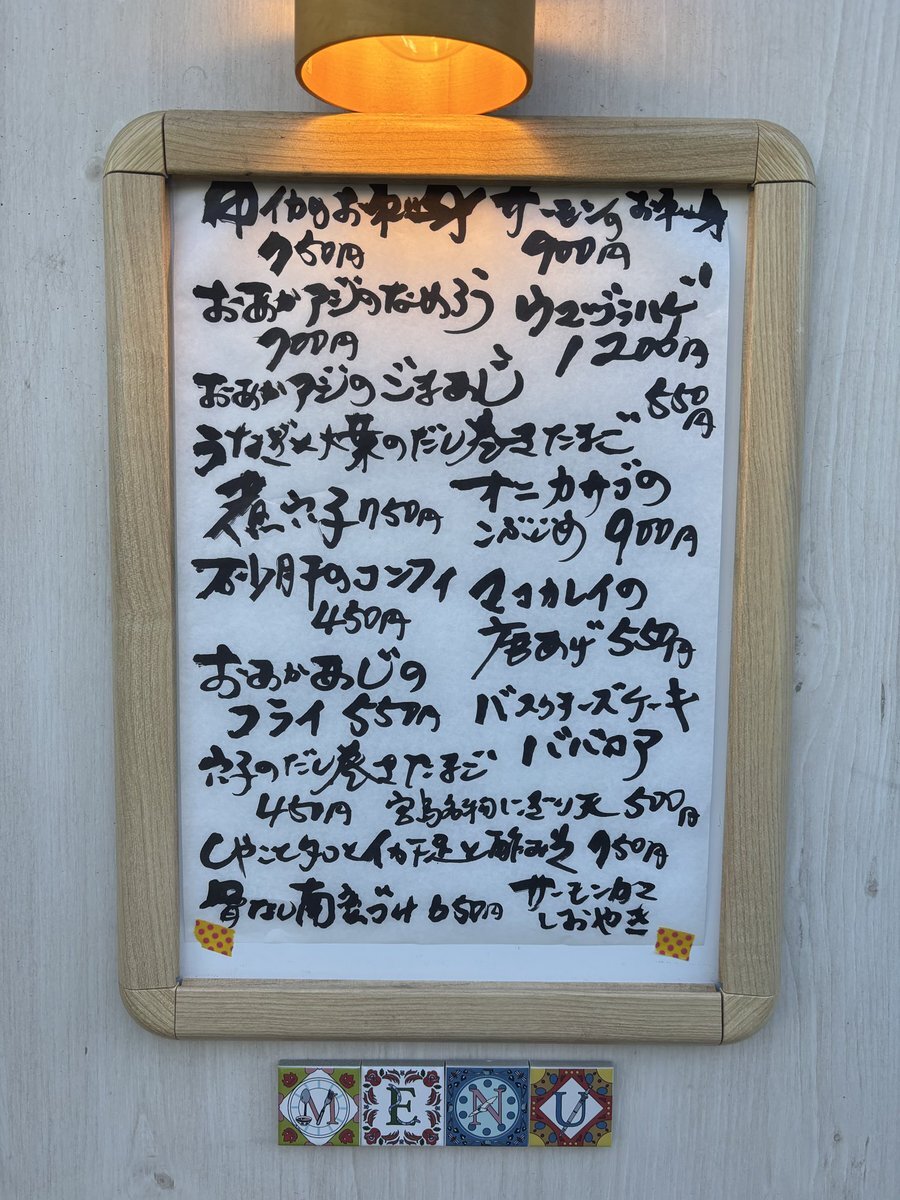 イカのお刺身 サーモンのお刺身
750円 900円
おあかアジのなめろう ウマヅラハゲ
700円 1200円
おあかアジのごまあじ 550円
うなぎと大葉のだし巻きたまご
煮穴子750円 オニカサゴの
こぶじめ 900円
砂肝のコンフィ マコカレイの
450円 唐あげ 550円
おあかあじの
フライ 550円 バスクチーズケーキ
ババロア
穴子のだし巻きたまご
450円 宮島名物にぎり天 500円
しゃことタコとイカ下足と酢みそ 750円
骨なし南蛮づけ 650円 サーモンカマ
しおやき
MENU